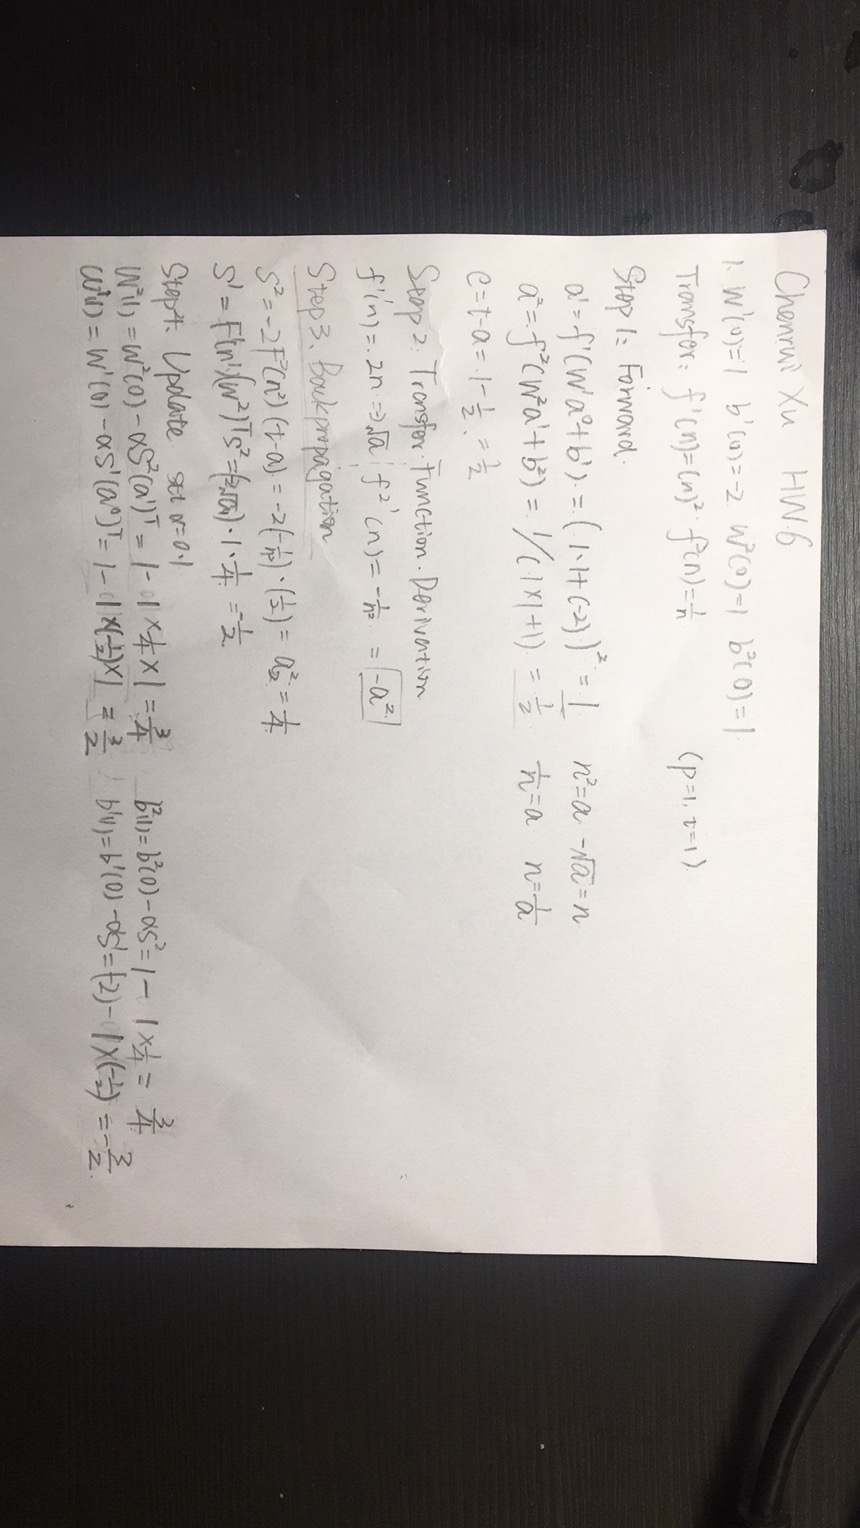 Chenrui Xu HW.6
1. W¹(0)=1 b¹(0)=-2 W²(0)=1 b²(0)=1
Transfor: f¹(n)=(n)² f²(n)=1/n (p=1, t=1)
Step 1: Forward.
a¹=f¹(W¹a⁰+b¹)=(1·1+(-2))²=1 n²=a -√a=n
a²=f²(W²a¹+b²)=1/(1×1+1)=1/2 1/n=a n=1/a
e=t-a=1-1/2=1/2
Step 2. Transfor. Function. Derivation
f¹'(n)=2n=> √a f²'(n)=-1/n²=-a²
Step 3. Backpropagation
S²=-2F²(n²)(t-a)=-2(-1/n²)·(1/2)=a₂²=1/4
S¹=F¹(n¹)(W²)ᵀS²=(-2√a)·1·1/4=-1/2
Step 4. Update set α=0.1
W²(1)=W²(0)-αS²(a¹)ᵀ=1-1×1/4×1=3/4 b²(1)=b²(0)-αS²=1-1×1/4=3/4
W¹(1)=W¹(0)-αS¹(a⁰)ᵀ=1-1×(-1/2)×1=3/2 b¹(1)=b¹(0)-αS¹=(-2)-1×(-1/2)=-3/2